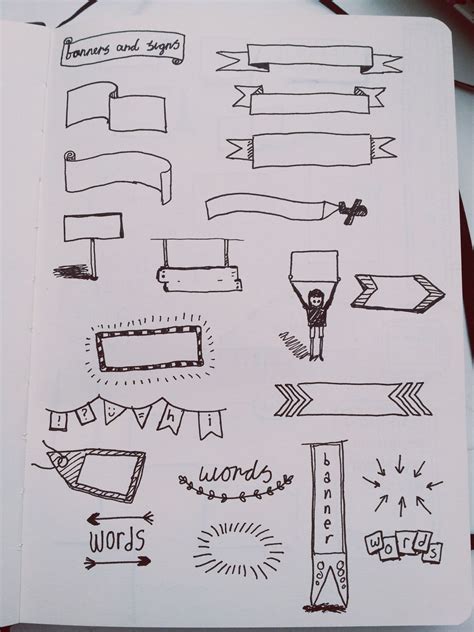 banners and signs
! ? = hi
words
banner
words
words